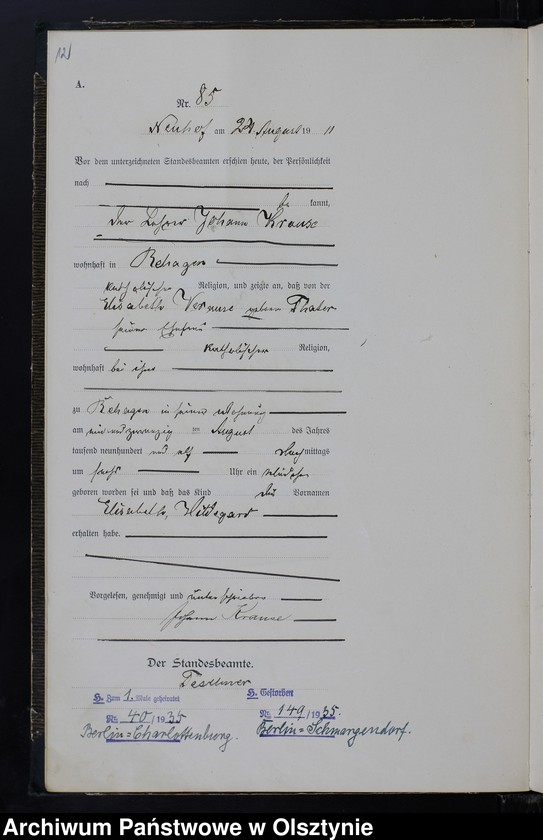 12
A.
Nr. 85
Neuhof am 24. August 19 11
Vor dem unterzeichneten Standesbeamten erschien heute, der Persönlichkeit
nach
be kannt,
der Lehrer Johann Krause
wohnhaft in Rehagen
katholischer Religion, und zeigte an, daß von der
Elisabeth Krause geborn Thater
seiner Ehefrau
katholischer Religion,
wohnhaft bei ihm
zu Rehagen in seiner Wohnung
am einundzwanzig ten August des Jahres
tausend neunhundert und elf Nachmittags
um sechs Uhr ein Mädchen
geboren worden sei und daß das Kind die Vornamen
Elisabeth, Hildegard
erhalten habe.
Vorgelesen, genehmigt und unterschrieben
Johann Krause
Der Standesbeamte.
Teschner
H. Zum 1. Male geheiratet
Nr. 40/1935
Berlin=Charlottenburg.
H. Gestorben
Nr. 149/1935.
Berlin=Schmargendorf.
Archiwum Państwowe w Olsztynie